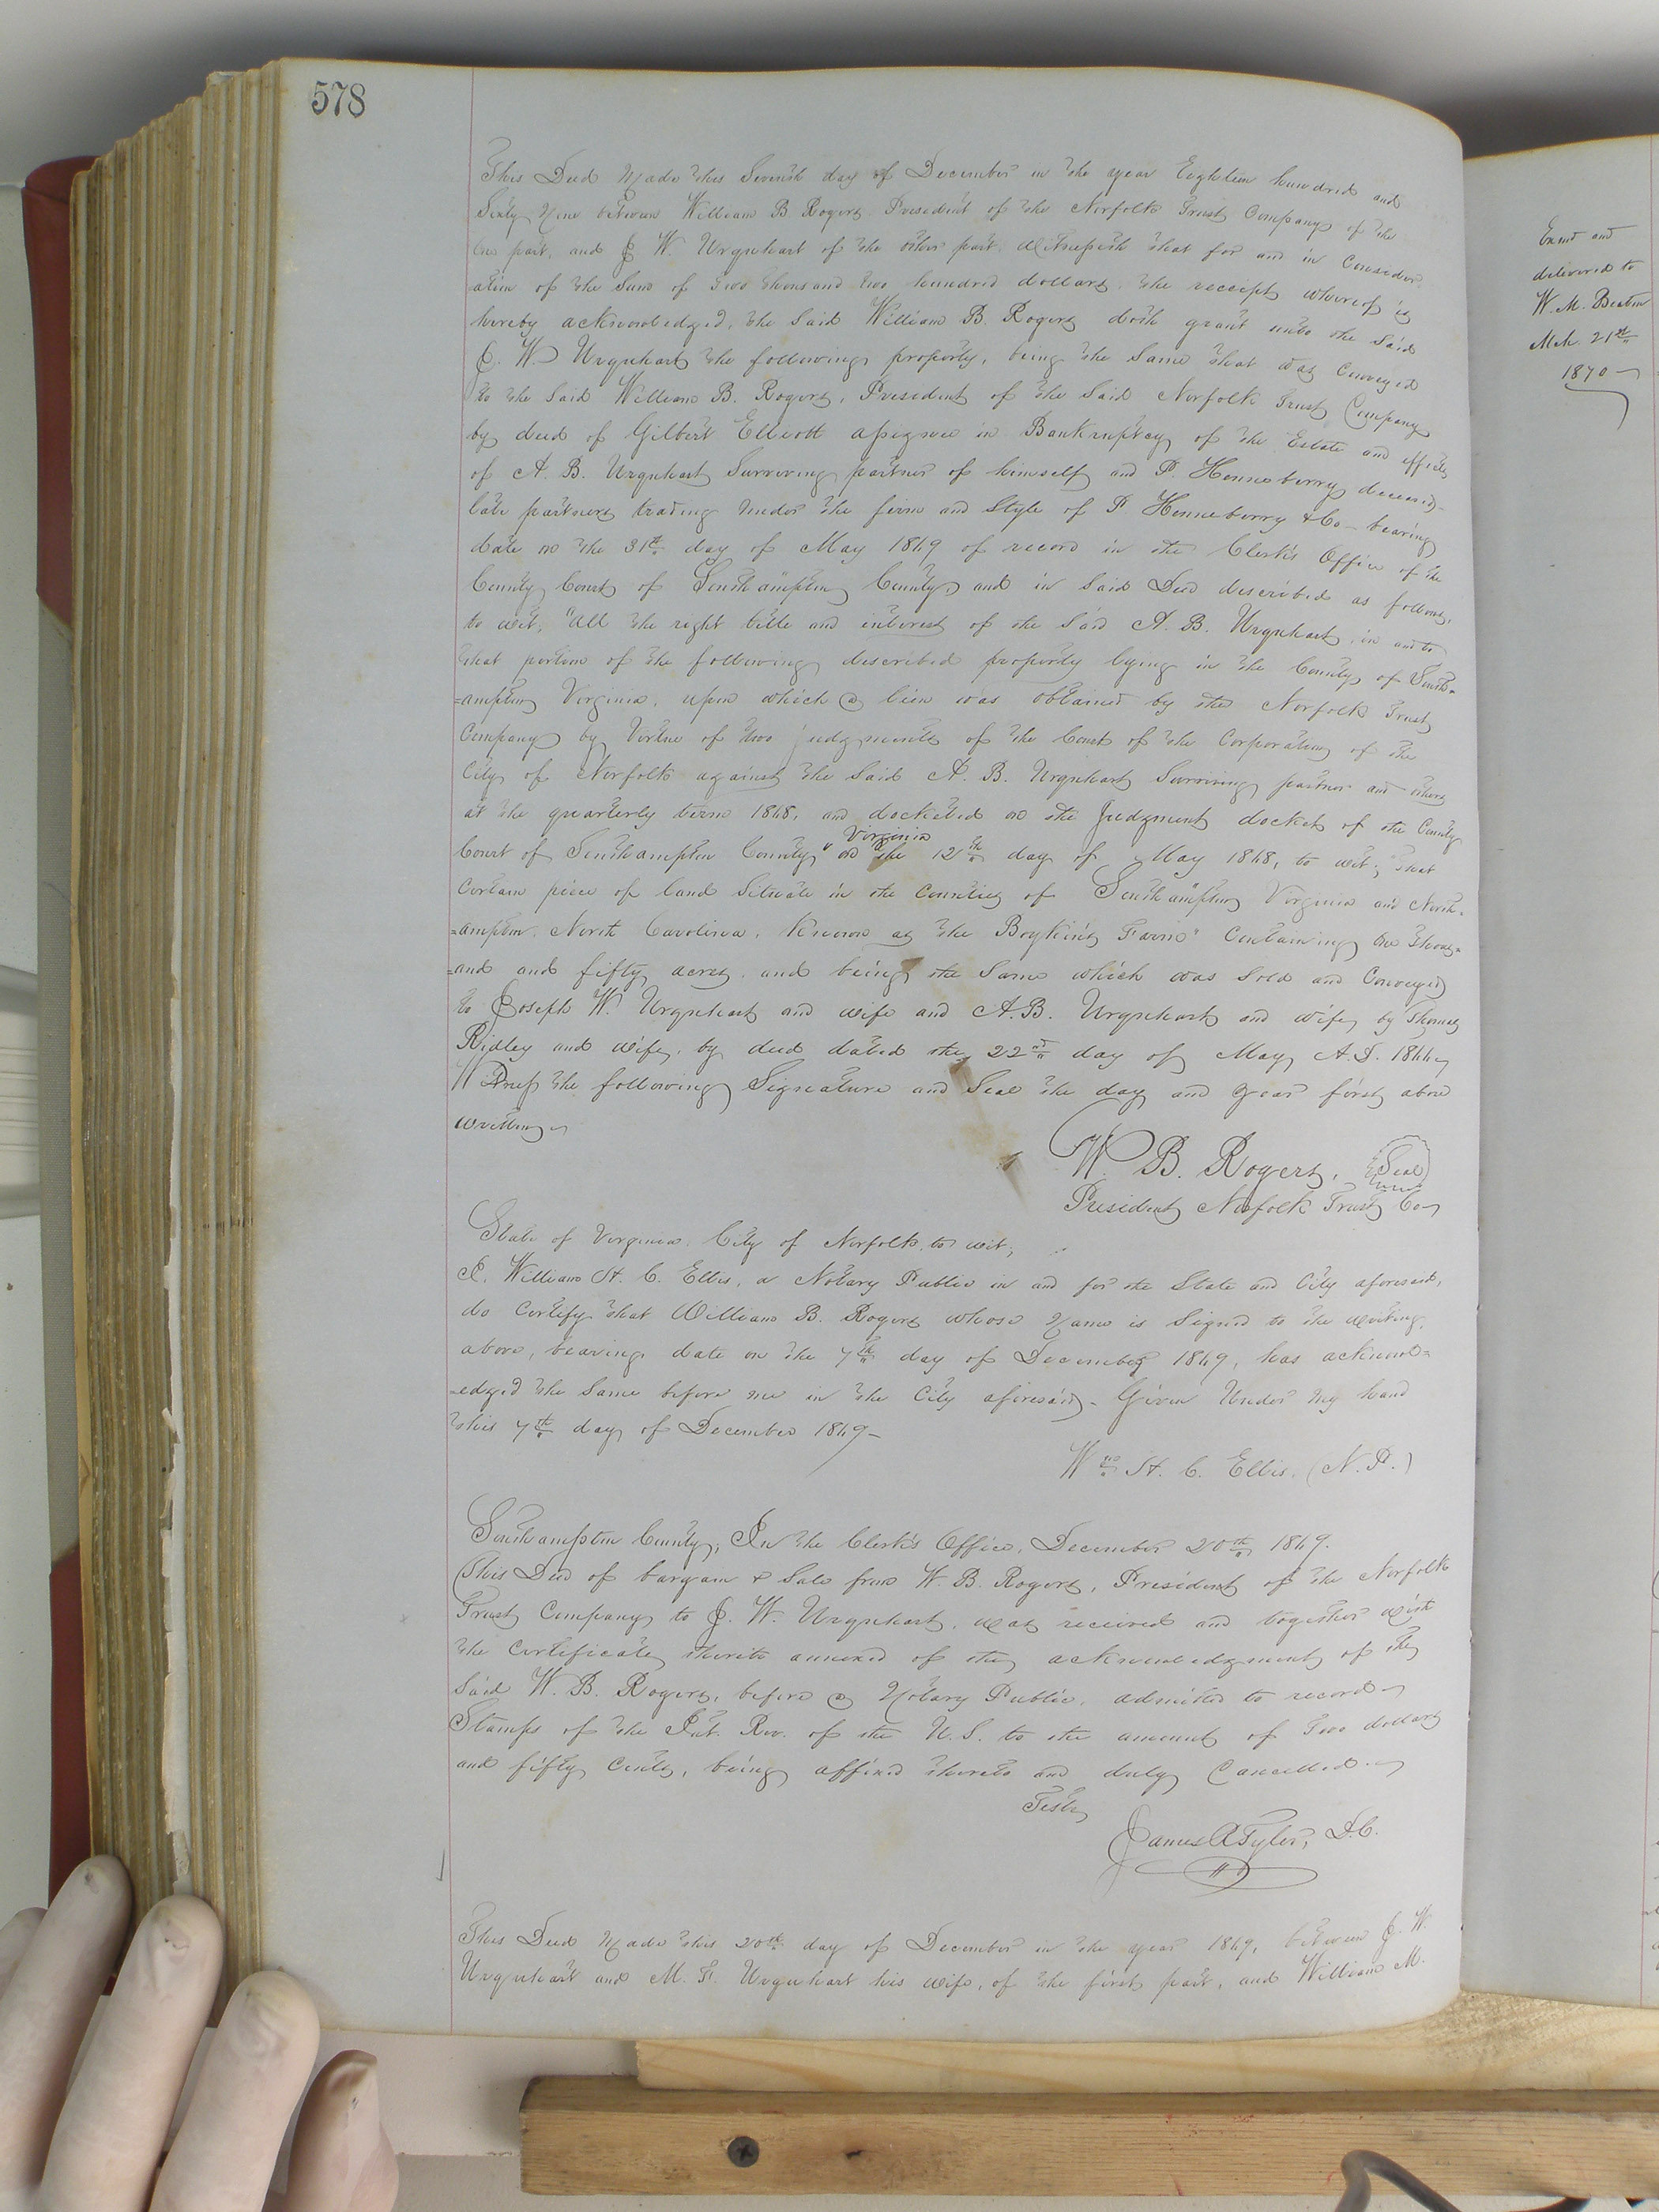 578
This Deed Made this Seventh day of December in the year Eighteen hundred and
Sixty Nine between William B Rogers President of the Norfolk Trust Company of the
one part, and J W. Urquhart of the other part. Witnesseth that for and in Consider
-ation of the Sum of Two thousand two hundred dollars, the receipt whereof is
hereby acknowledged, the said William B. Rogers doth grant unto the said
J. W. Urquhart the following property, being the Same that was Conveyed
to the said William B. Rogers, President of the said Norfolk Trust Company
by deed of Gilbert Elliott assignee in Bankruptcy of the Estate and effects
of A. B. Urquhart Surviving partner of himself and P. Henneberry deceased
late partners trading under the firm and Style of P Henneberry & Co - bearing
date on the 31st day of May 1869 of record in the Clerk's Office of the
County Court of Southampton County and in said Deed described as follows,
to wit; "All the right title and interest of the said A. B. Urquhart in and to
that portion of the following described property lying in the County of South=
=ampton Virginia, upon which a lien was obtained by the Norfolk Trust
Company by Virtue of two judgments of the Court of the Corporation of the
City of Norfolk against the said A. B. Urquhart Surviving partner and others
at the quarterly term 1868, and docketed on the Judgment docket of the County
Virginia
Court of Southampton County on the 12th day of May 1868, to wit; That
Certain piece of land Situate in the Counties of Southampton Virginia and North=
=ampton North Carolina. Known as the Boykin's Farm" Containing One thous=
=and and fifty acres. and being the Same which was Sold and Conveyed
to Joseph W. Urquhart and wife and A. B. Urquhart and wife, by Thomas
Ridley and wife, by deed dated the 22nd day of May, A.D. 1866
Witness the following Signature and Seal the day and year first above
written
W. B. Rogers, (Seal)
President Norfolk Trust Co
State of Virginia. City of Norfolk, to wit;
I, William St. C. Ellis, a Notary Public in and for the State and City aforesaid,
do Certify that William B. Rogers whose Name is Signed to the writing
above, bearing date on the 7th day of December 1869, has acknowl=
=edged the Same before me in the City aforesaid - Given Under My hand
this 7th day of December 1869 -
Wm St. C. Ellis. (N. P.)
Southampton County, In the Clerk's Office, December 20th 1869.
This Deed of bargain & Sale from W. B. Rogers, President of the Norfolk
Trust Company to J. W. Urquhart, was received and together with
the Certificate thereto annexed of the acknowledgment of the
said W. B. Rogers, before a Notary Public, admitted to record
Stamps of the Int. Rev. of the U.S. to the amount of Two dollars
and fifty Cents, being affixed thereto and duly Cancelled.
Teste
James A Tyler, D.C.
This Deed Made this 20th day of December in the year 1869, between J. W.
Urquhart and M. F. Urquhart his wife, of the first part, and William M.
Exmd and
delivered to
W. M. Beaton
Mch 21st
1870